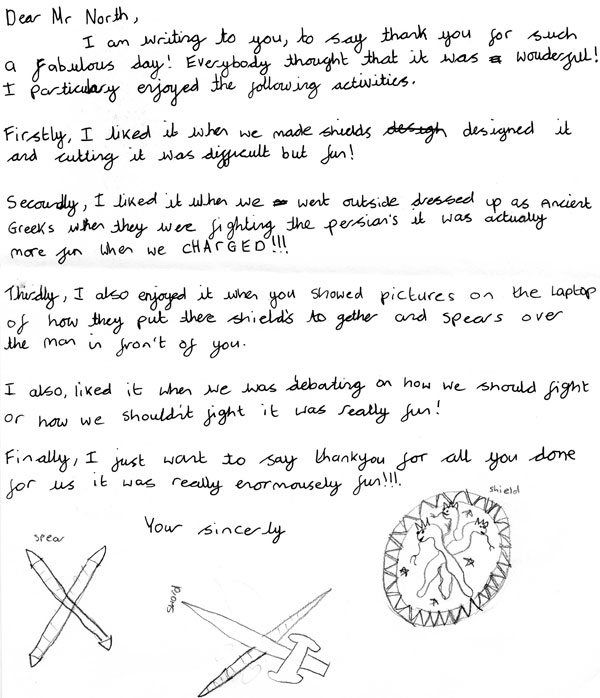 Dear Mr North,
I am writing to you, to say thank you for such
a fabulous day! Everybody thought that it was a wonderful!
I particulary enjoyed the following activities.
Firstly, I liked it when we made shields desigh designed it
and cutting it was difficult but fun!
Secoundly, I liked it when we went outside dressed up as Ancient
Greeks when they were fighting the persian's it was actually
more fun when we CHARGED!!!
Thirdly, I also enjoyed it when you showed pictures on the laptop
of how they put there shield's to gether and spears over
the man in fron't of you.
I also, liked it when we was debating on how we should fight
or how we should'nt fight it was really fun!
Finally, I just want to say thankyou for all you done
for us it was really enormousely fun!!!.
Your sincerly
spear
shield